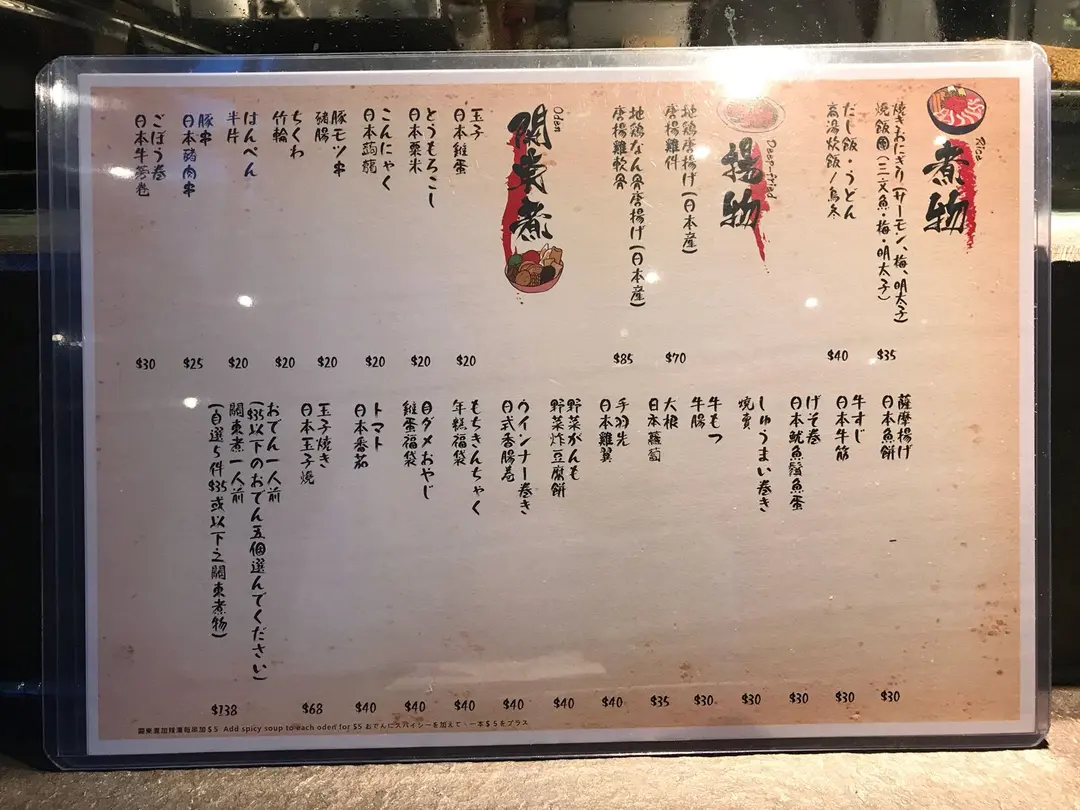 Rice
煮物
焼きおにぎり(サーモン、梅、明太子)
燒飯團(三文魚・梅・明太子)
$35
だし飯・うどん
高湯炊飯/烏冬
$40
Deep-fried
揚物
地鶏唐揚げ(日本産)
唐揚雞件
$70
地鶏なん骨唐揚げ(日本産)
唐揚雞軟骨
$85
Oden
関東煮
玉子
日本雞蛋
$20
とうもろこし
日本粟米
$20
こんにゃく
日本蒟蒻
$20
豚モツ串
豬腸
$20
ちくわ
竹輪
$20
はんぺん
半片
$20
豚串
日本豬肉串
$25
ごぼう巻
日本牛蒡卷
$30
薩摩揚げ
日本魚餅
$30
牛すじ
日本牛筋
$30
げそ巻
日本魷魚鬚魚蛋
$30
しゅうまい巻き
燒賣
$30
牛もつ
牛腸
$30
大根
日本蘿蔔
$35
手羽先
日本雞翼
$40
野菜がんも
野菜炸豆腐餅
$40
ウインナー巻き
日式香腸卷
$40
もちきんちゃく
年糕福袋
$40
目ダメおやじ
雞蛋福袋
$40
トマト
日本番茄
$40
玉子焼き
日本玉子燒
$68
おでん一人前
($35以下のおでん五個選んでください)
関東煮一人前
(自選5件$35或以下之関東煮物)
$138
關東煮加辣湯每串加$5 Add spicy soup to each oden for $5 おでんにスパイシーを加えて、一本$5をプラス